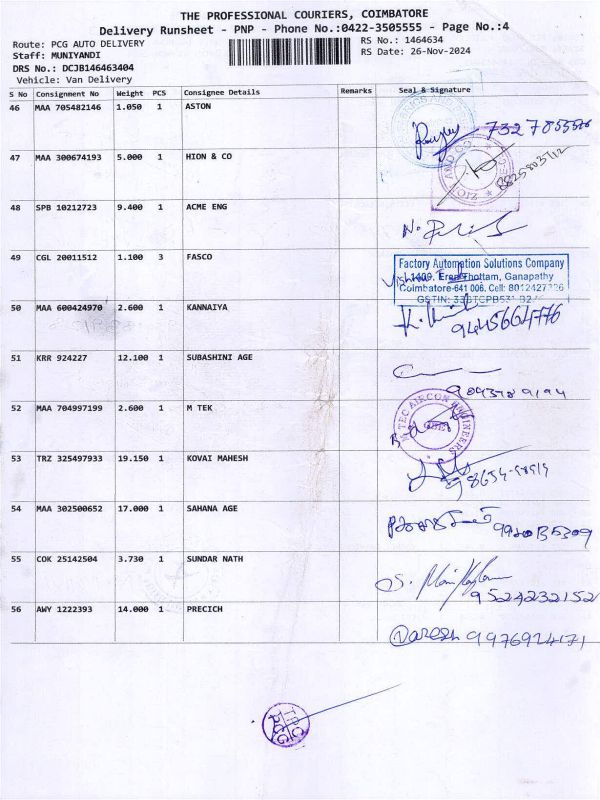 THE PROFESSIONAL COURIERS, COIMBATORE
Delivery Runsheet - PNP - Phone No.:0422-3505555 - Page No.:4
Route: PCG AUTO DELIVERY RS No.: 1464634
Staff: MUNIYANDI RS Date: 26-Nov-2024
DRS No.: DCJB146463404
Vehicle: Van Delivery
S No Consignment No Weight PCS Consignee Details Remarks Seal & Signature
46 MAA 705482146 1.050 1 ASTON
47 MAA 300674193 5.000 1 HION & CO
48 SPB 10212723 9.400 1 ACME ENG
49 CGL 20011512 1.100 3 FASCO
Factory Automation Solutions Company
Thottam, Ganapathy
Coimbatore-641 006. Cell: 8012427326
50 MAA 600424970 2.600 1 KANNAIYA
9445664776
51 KRR 924227 12.100 1 SUBASHINI AGE
52 MAA 704997199 2.600 1 M TEK
M TEC AIRCON ENGINEERS
53 TRZ 325497933 19.150 1 KOVAI MAHESH
54 MAA 302500652 17.000 1 SAHANA AGE
55 COK 25142504 3.730 1 SUNDAR NATH
9524232152
56 AWY 1222393 14.000 1 PRECICH
Naresh 9976924171